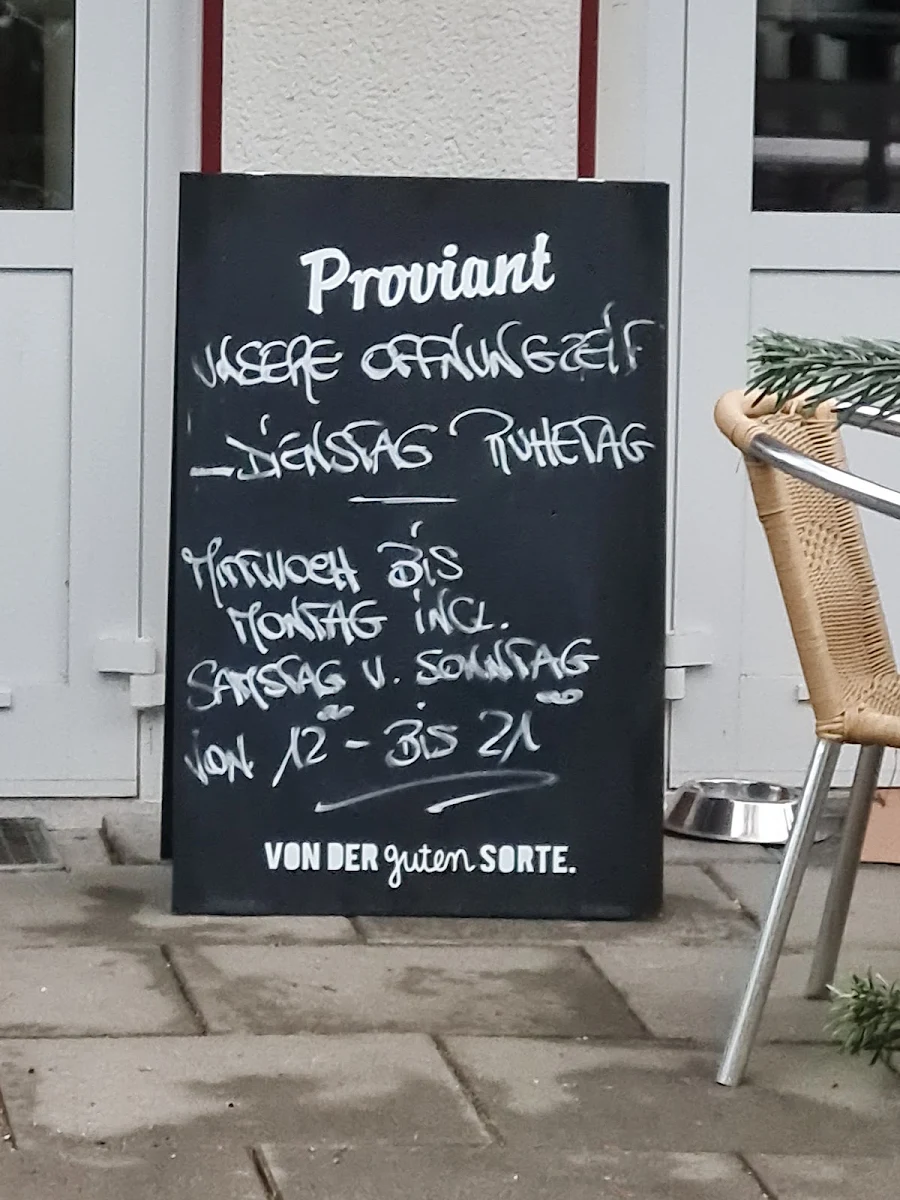 Proviant
UNSERE OFFNUNGZEIT
DIENSTAG RUHETAG
MITTWOCH BIS
MONTAG INCL.
SAMSTAG U. SONNTAG
VON 12 - BIS 21
VON DER guten SORTE.